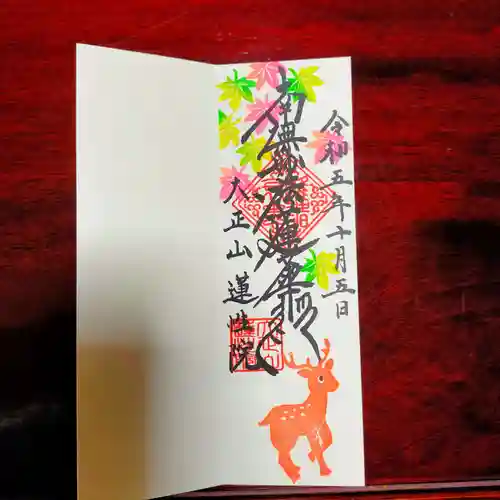 令和五年十月五日
南無妙法蓮華経
大正山 蓮性院